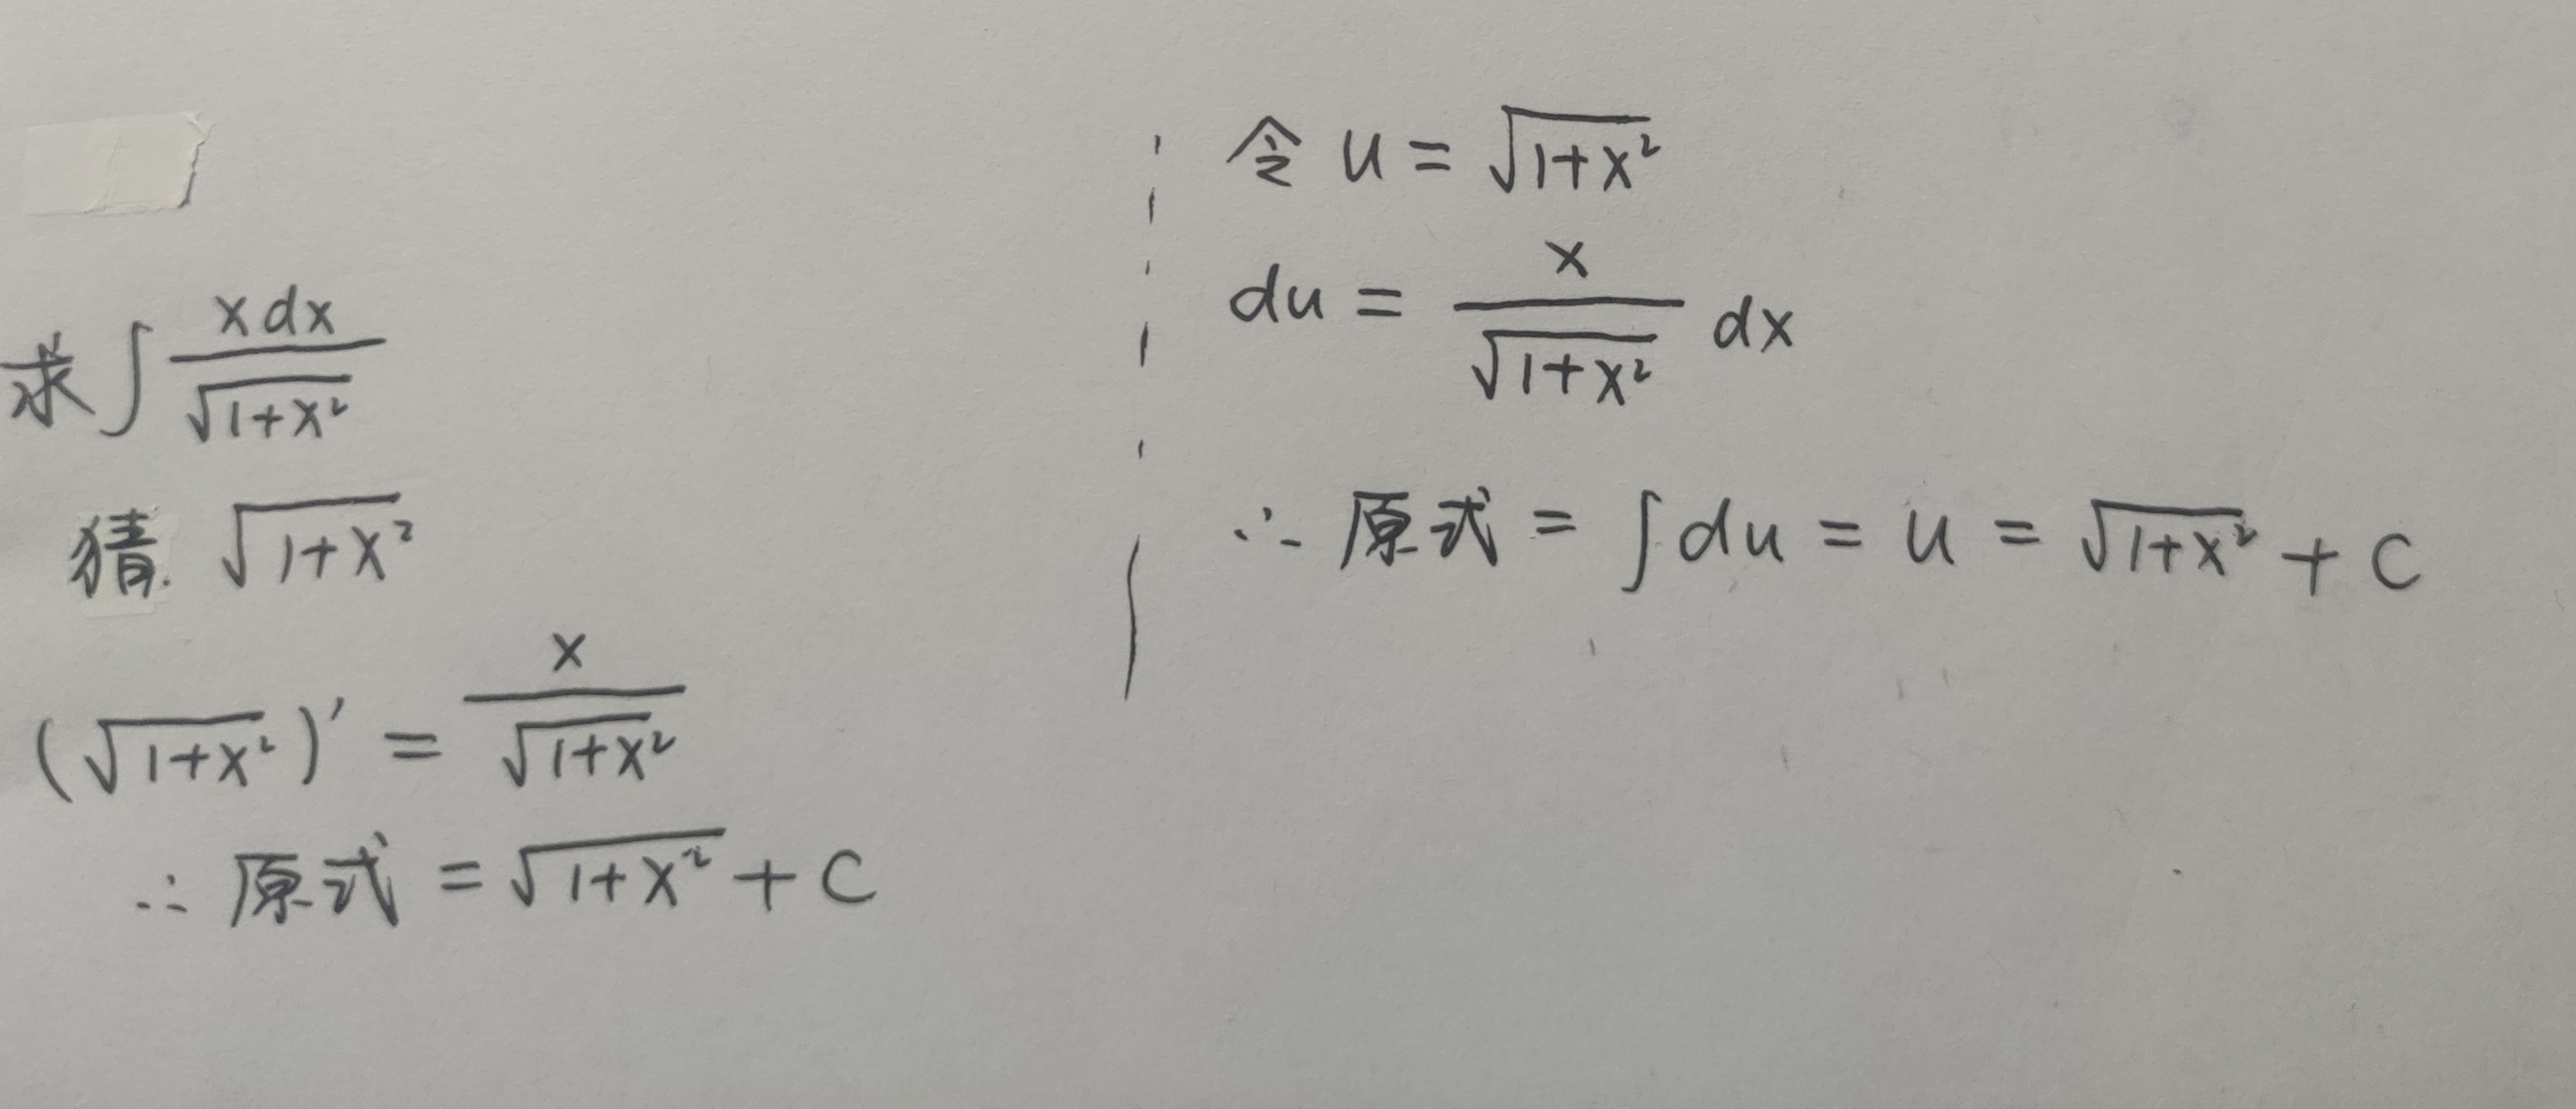 求∫ x dx / √(1+x²)
猜. √(1+x²)
(√(1+x²))′ = x / √(1+x²)
∴ 原式 = √(1+x²) + C
令 u = √(1+x²)
du = x / √(1+x²) dx
∴ 原式 = ∫ du = u = √(1+x²) + C